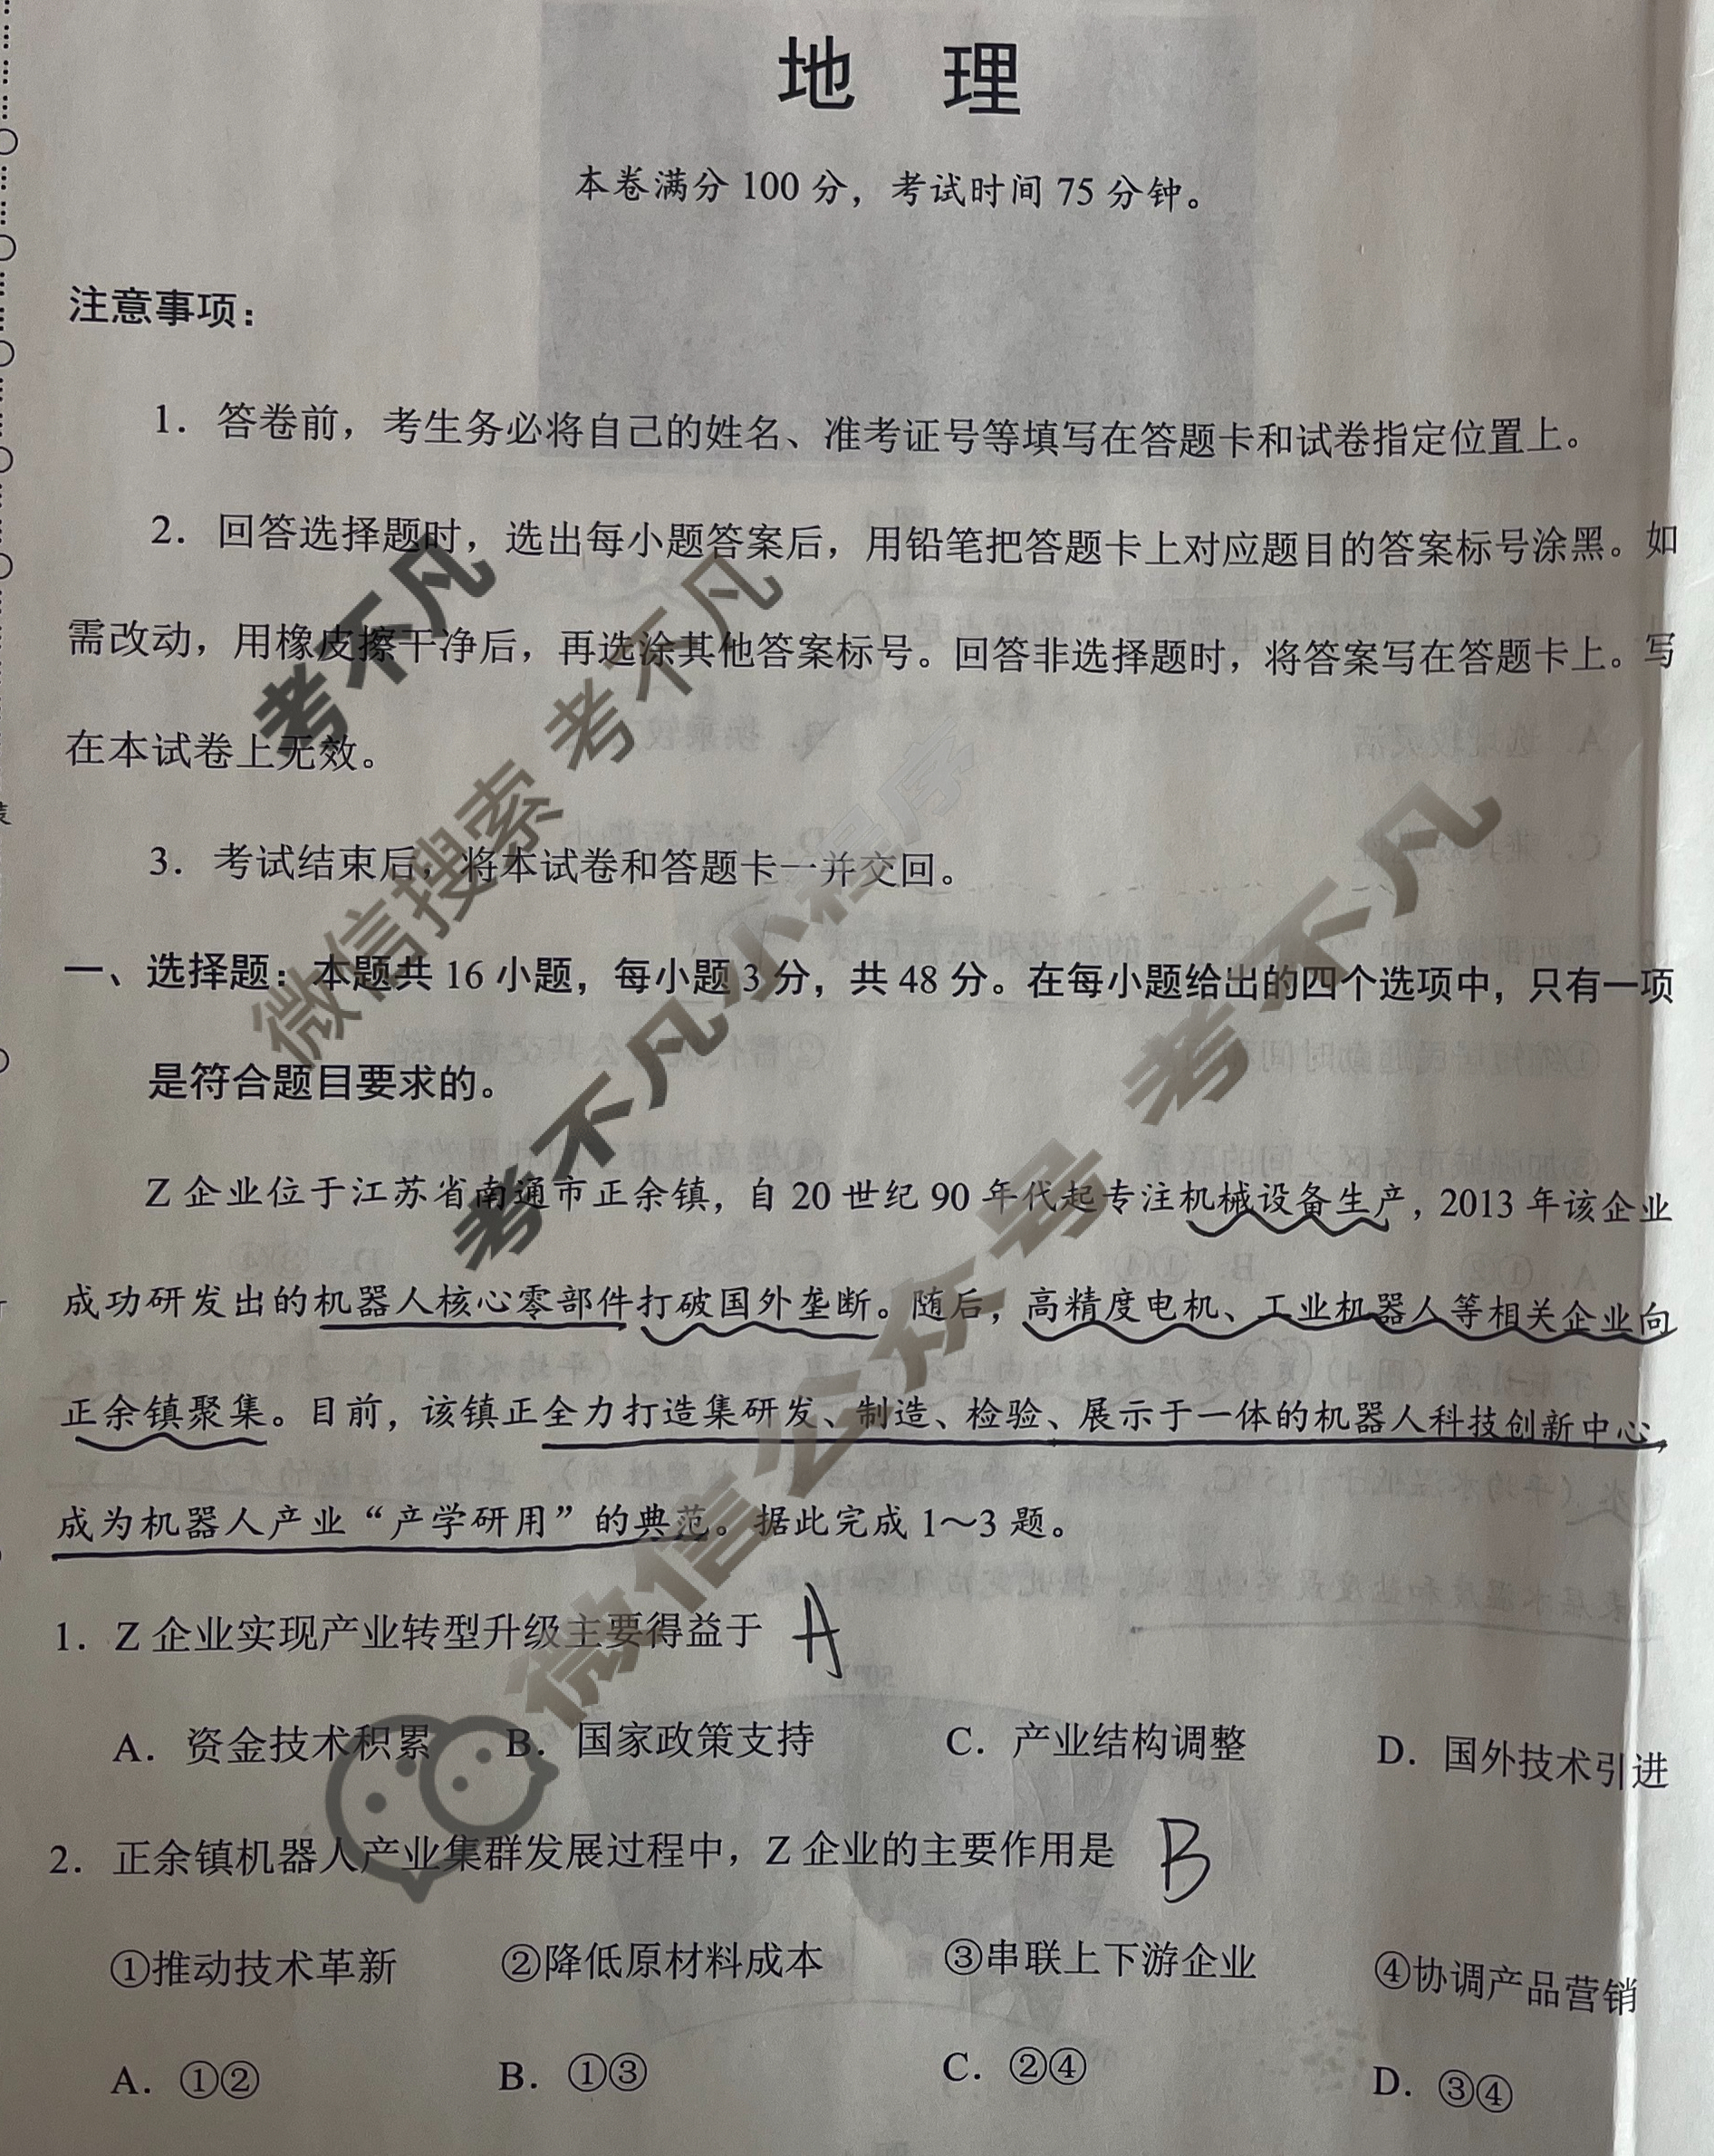 地 理
本卷满分 100 分，考试时间 75 分钟。
注意事项：
1．答卷前，考生务必将自己的姓名、准考证号等填写在答题卡和试卷指定位置上。
2．回答选择题时，选出每小题答案后，用铅笔把答题卡上对应题目的答案标号涂黑。如
需改动，用橡皮擦干净后，再选涂其他答案标号。回答非选择题时，将答案写在答题卡上。写
在本试卷上无效。
3．考试结束后，将本试卷和答题卡一并交回。
一、选择题：本题共 16 小题，每小题 3 分，共 48 分。在每小题给出的四个选项中，只有一项
是符合题目要求的。
Z 企业位于江苏省南通市正余镇，自 20 世纪 90 年代起专注机械设备生产，2013 年该企业
成功研发出的机器人核心零部件打破国外垄断。随后，高精度电机、工业机器人等相关企业向
正余镇聚集。目前，该镇正全力打造集研发、制造、检验、展示于一体的机器人科技创新中心，
成为机器人产业“产学研用”的典范。据此完成 1～3 题。
1．Z 企业实现产业转型升级主要得益于 A
A．资金技术积累 B．国家政策支持 C．产业结构调整 D．国外技术引进
2．正余镇机器人产业集群发展过程中，Z 企业的主要作用是 B
①推动技术革新 ②降低原材料成本 ③串联上下游企业 ④协调产品营销
A．①② B．①③ C．②④ D．③④
考不凡
微信搜索 考不凡
考不凡小程序
微信公众号 考不凡